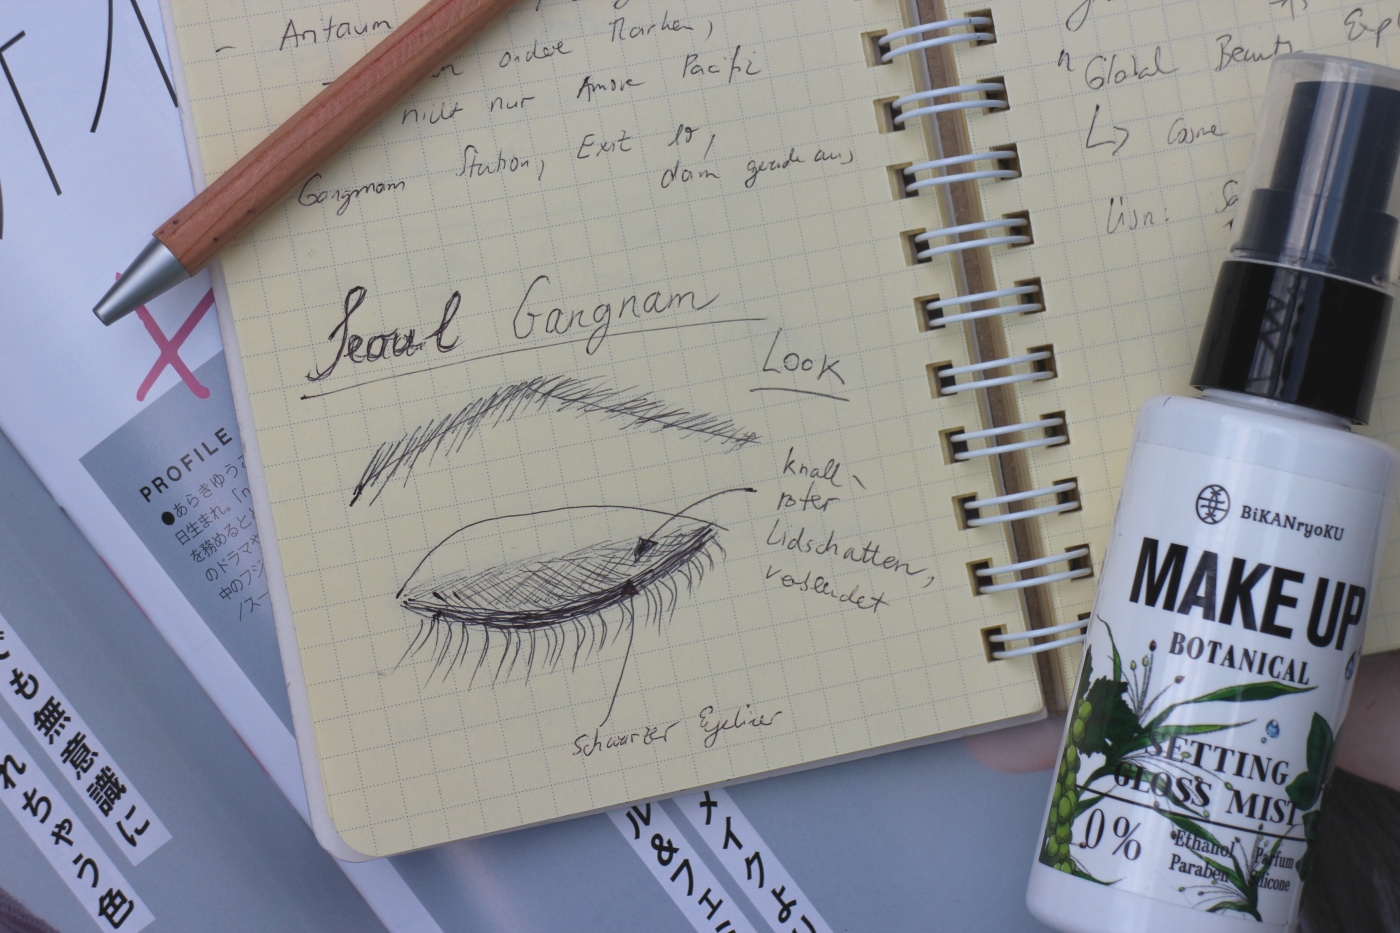 - Aritaum
andere Marken,
nicht nur Amore Pacific
Gangnam Station, Exit 10,
dann gerade aus,
Seoul Gangnam
Look
knall-
roter
Lidschatten,
verblendet
schwarzer Eyeliner
Global Beauty Exp
↳ Cosme
PROFILE
●あらきゆうこ
日生まれ。「n
を務めると
のドラマや
中のフジ
/スー
でも無意識に
れちゃう色
ル&フェ
メイクよ
BiKANryoKU
MAKE UP
BOTANICAL
SETTING
GLOSS MIST
0%
Ethanol Parfum
Paraben Silicone